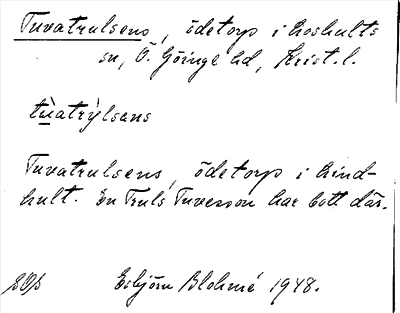 Tuvatrulsens, ödetorp i Loshults
sn, Ö. Göinge hd, Krist. l.
tùatrỳlsans
Tuvatrulsens, ödetorp i Kind-
hult. En Truls Tuvesson har bott där.
Esbjörn Blohmé 1948.